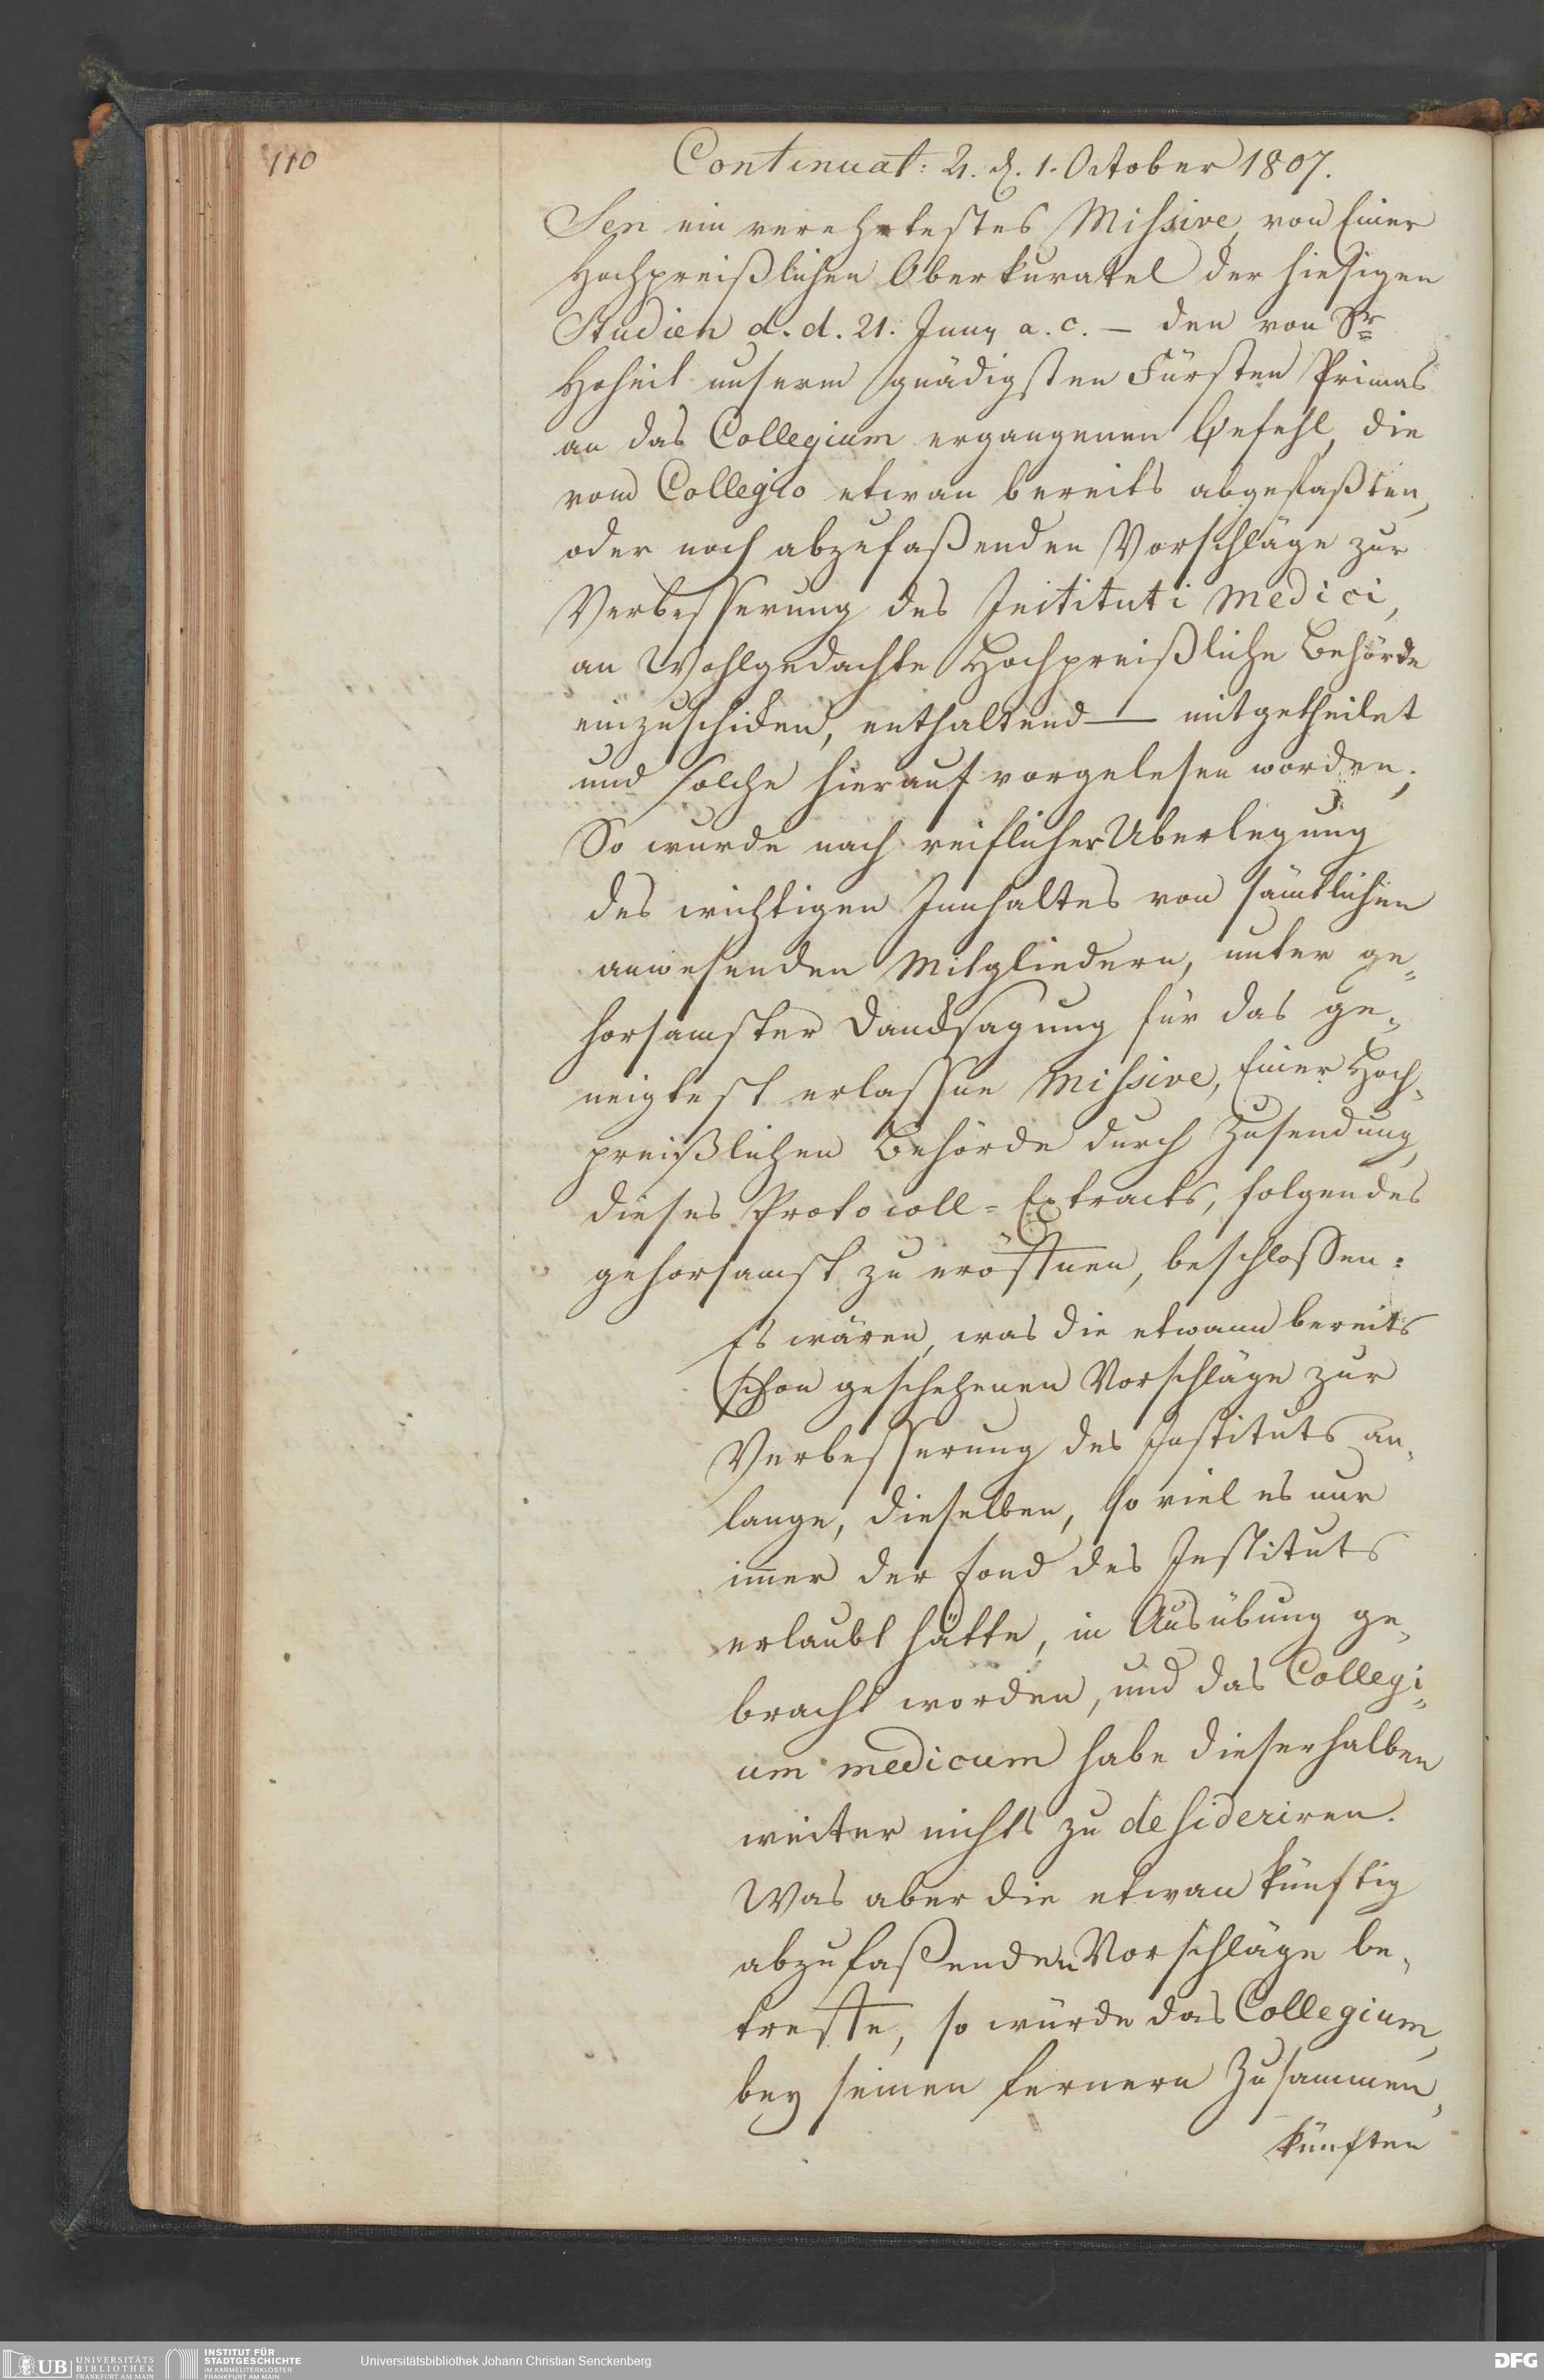 110
Continuat: 4. d. 1. October 1807.
Sen ein verehrtestes Missive, von Einer
Hochpreißlichen Oberkuratel der hiesigen
Studien d. d. 21. Juny a. c. — den von Sr
Hoheit unserm gnädigsten Fürsten Primas
an das Collegium ergangenen Befehl, die
vom Collegio etwan bereits abgefaßten,
oder noch abzufaßenden Vorschläge zur
Verbesserung des Instituti Medici,
an Wohlgedachte Hochpreißliche Behörde
einzuschicken, enthaltend — mitgetheilet
und solche hierauf vorgelesen worden;
So wurde nach reiflicher Uberlegung
des wichtigen Innhaltes von sämtlichen
anwesenden Mitgliedern, unter ge„
horsamster Dancksagung für das ge„
neigtest erlassne Missive, Einer Hoch„
preißlichen Behörde durch Zusendung,
dieses Protocoll=Extracts, folgendes
gehorsamst zu eröffnen, beschlossen:
Es wären, was die etwann bereits
schon geschehenen Vorschläge zur
Verbesserung des Instituts an„
lange, dieselben, so viel es nur
im̄er der Fond des Instituts
erlaubt hätte, in Ausübung ge„
bracht worden, und das Collegi„
um medicum habe dieserhalben
weiter nichts zu desideriren.
Was aber die etwan künftig
abzufaßenden Vorschläge be„
treffe, so würde das Collegium,
bey seinen fernern Zusammen„
künften
UB UNIVERSITÄTS
BIBLIOTHEK
FRANKFURT AM MAIN
INSTITUT FÜR
STADTGESCHICHTE
IM KARMELITERKLOSTER
FRANKFURT AM MAIN
Universitätsbibliothek Johann Christian Senckenberg
DFG